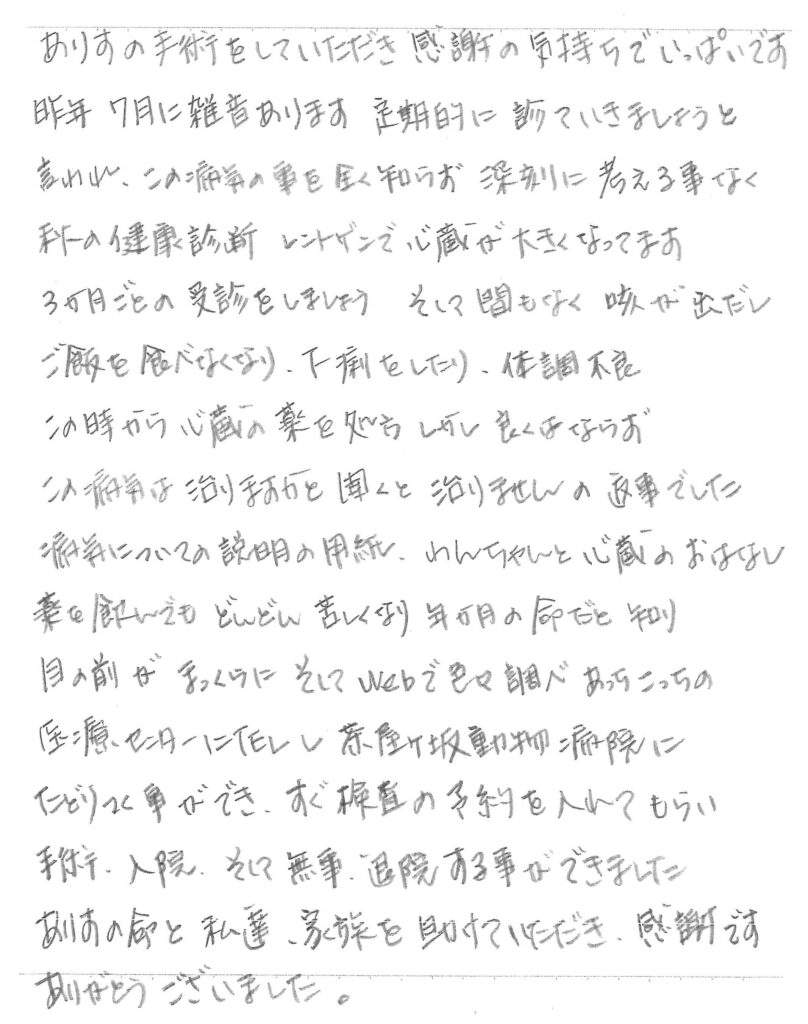 ありすの手術をしていただき 感謝の気持ちでいっぱいです
昨年 7月に雑音あります 定期的に 診ていきましょうと
言われ、この病気の事を全く知らず 深刻に 考える事なく
秋の健康診断 レントゲンで心臓が 大きくなってます
3か月ごとの受診をしましょう そして間もなく 咳が出だし
ご飯を食べなくなり、下痢をしたり、体調不良
この時から心臓の薬を処方 しかし 良くはならず
この病気は治りますかと聞くと 治りませんの返事でした
病気についての説明の用紙、わんちゃんと心臓のおはなし
薬を飲んでも どんどん 苦しくなり 年か月の命だと 知り
目の前が まっくらに そして Webで色々調べ あっちこっちの
医療センターにTELし 茶屋ヶ坂動物病院に
たどりつく事ができ、すぐ検査の予約を入れてもらい
手術、入院、そして無事、退院する事ができました
ありすの命と私達、家族を助けていただき、感謝です
ありがとうございました。